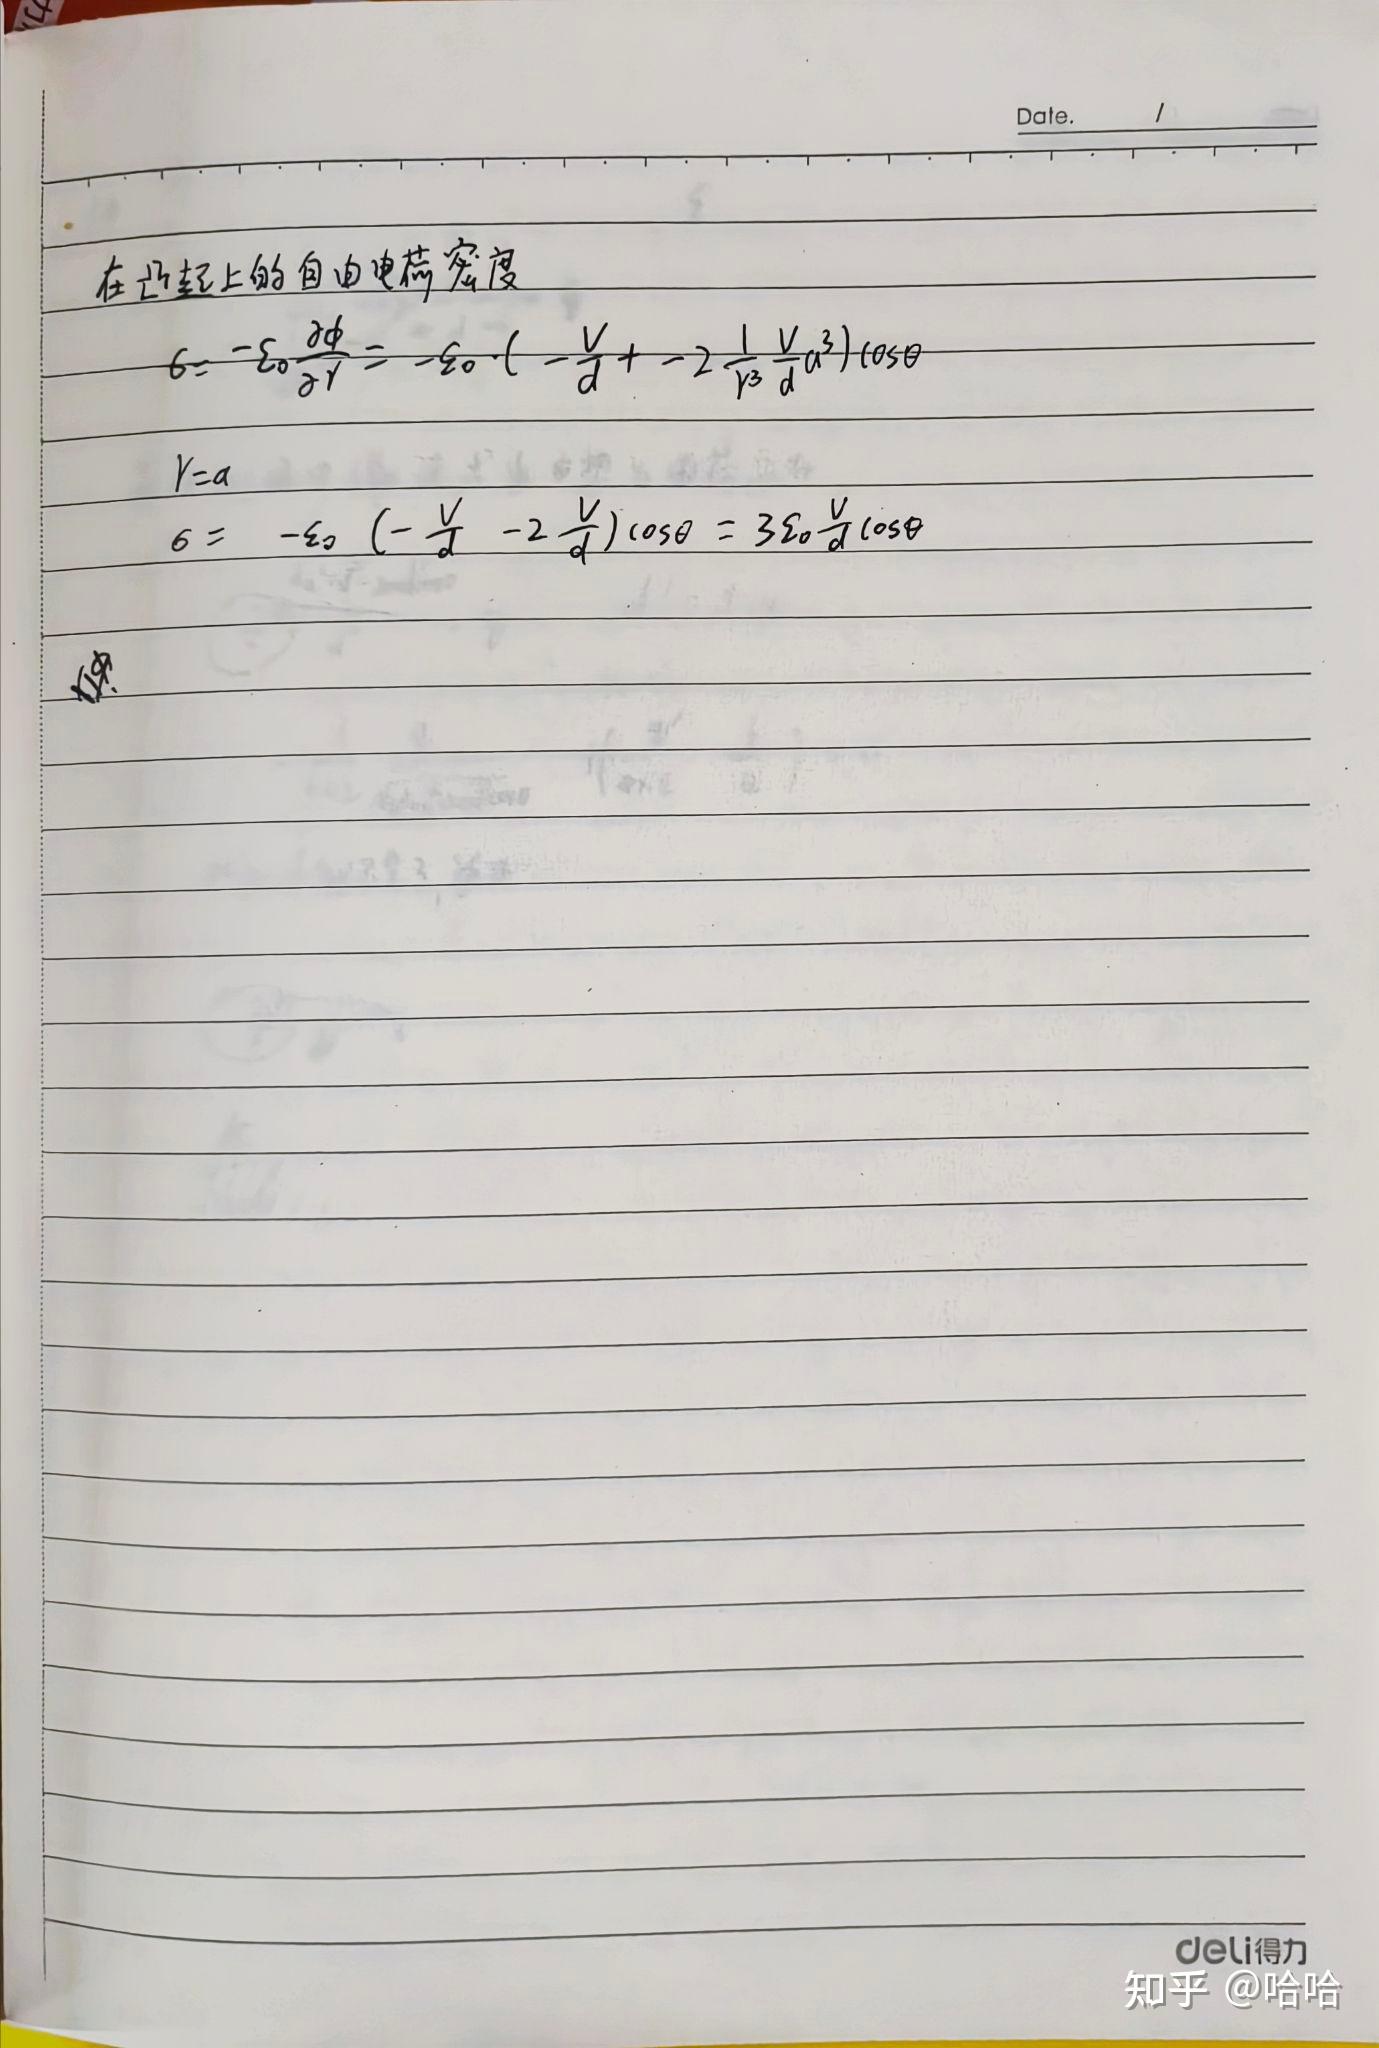 Date. /
在凸起上的自由电荷密度
σ = -ε₀ ∂φ/∂r = -ε₀·( - V/d + -2 1/r³ V/d a³) cosθ
r=a
σ = -ε₀ (- V/d -2 V/d) cosθ = 3ε₀ V/d cosθ
deli得力
知乎 @哈哈